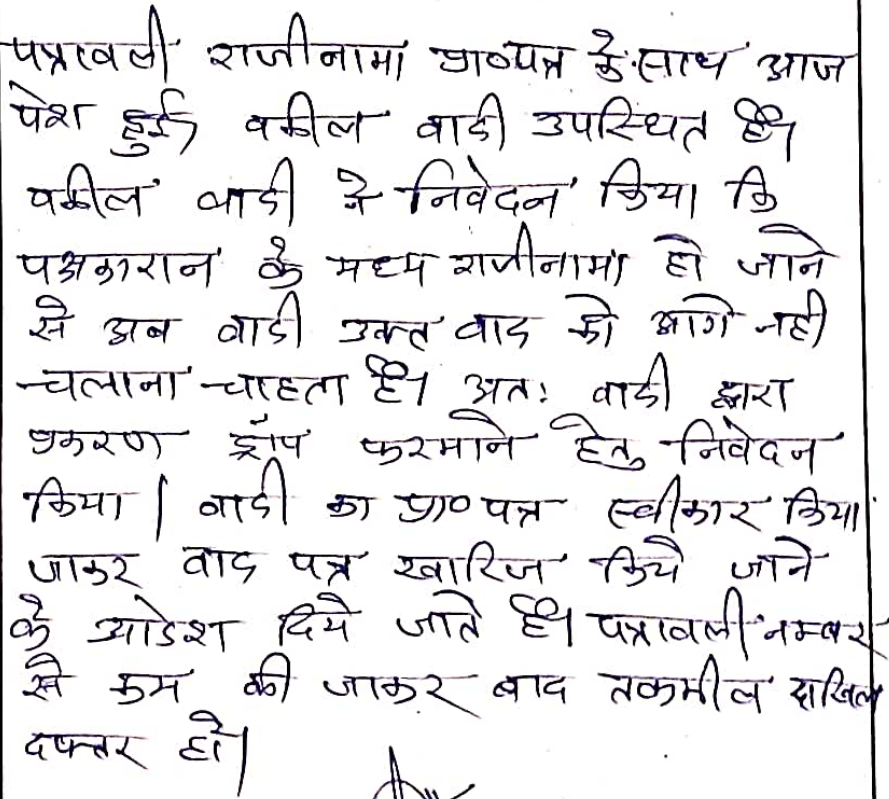 पत्रावली राजीनामा प्रा०पत्र के साथ आज
पेश हुई, वकील वादी उपस्थित है।
वकील वादी ने निवेदन किया कि
पक्षकारान के मध्य राजीनामा हो जाने
से अब वादी उक्त वाद को आगे नही
चलाना चाहता है। अतः वादी द्वारा
प्रकरण ड्रॉप फरमाने हेतु निवेदन
किया। वादी का प्रा० पत्र स्वीकार किया
जाकर वाद पत्र खारिज किये जाने
के आदेश दिये जाते है। पत्रावली नम्बर
से कम की जाकर बाद तकमील दाखिल
दफ्तर हो।